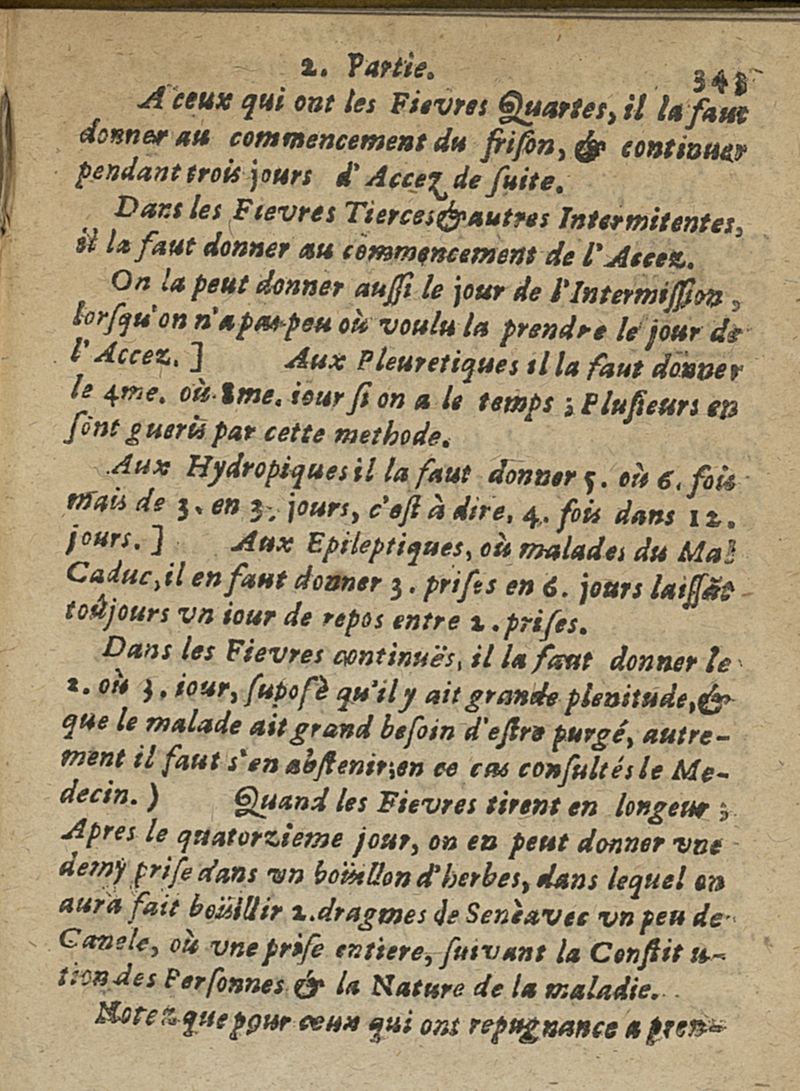 2. Partie. 343
A ceux qui ont les Fievres Quartes, il la faut
donner au commencement du friſon, & continuer
pendant trois jours d'Accez de ſuite.
Dans les Fievres Tierces & autres Intermitentes,
il la faut donner au commencement de l'Accez.
On la peut donner auſſi le jour de l'Intermiſſion,
lorſqu'on n'a pas peu où voulu la prendre le jour de
l'Accez. ] Aux Pleuretiques il la faut donner
le 4me. où 8me. iour ſi on a le temps ; Pluſieurs en
ſont gueris par cette methode.
Aux Hydropiques il la faut donner 5. où 6. fois
mais de 3. en 3. jours, c'eſt à dire, 4. fois dans 12.
jours. ] Aux Epileptiques, où malades du Mal
Caduc, il en faut donner 3. priſes en 6. jours laiſſãt
toûjours vn iour de repos entre 2. priſes.
Dans les Fievres continuës, il la faut donner le
2. où 3. iour, ſupoſè qu'il y ait grande plenitude, &
que le malade ait grand beſoin d'eſtre purgé, autre-
ment il faut s'en abſtenir; en ce cas conſultés le Me-
decin. ) Quand les Fievres tirent en longeur ;
Apres le quatorzieme jour, on en peut donner vne
demy priſe dans un boüillon d'herbes, dans lequel on
aura fait boüillir 2. dragmes de Senè avec vn peu de
Canele, où vne priſe entiere, ſuivant la Conſtitu-
tion des Perſonnes & la Nature de la maladie.
Notez que pour ceux qui ont repugnance a pren-